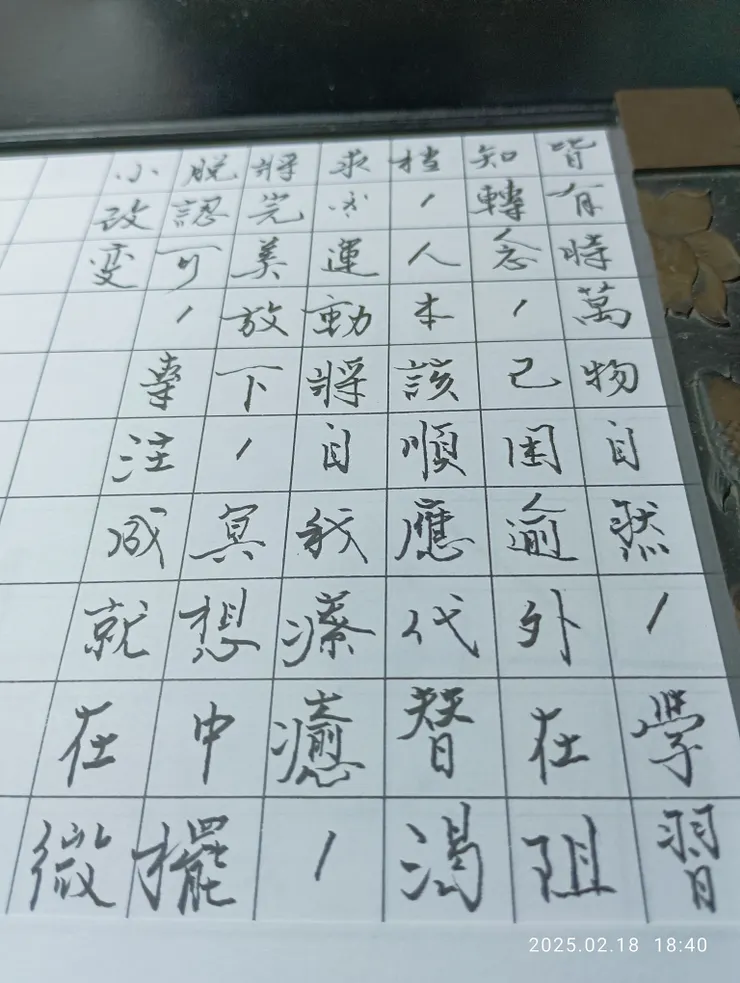 皆有時萬物自然,學習
知轉念,己困逾外在阻
档,人本該順應代智渴
求運動將自我療癒,
將完美放下,冥想中擺
脫認可,專注就在微
小改变
2025.02.18 18:40